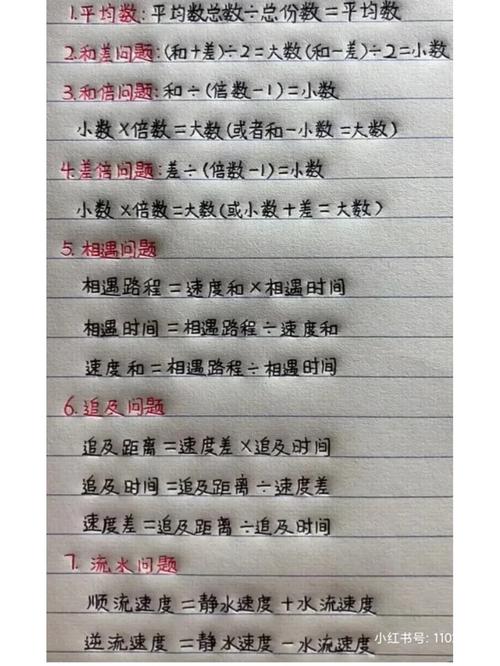 1.平均数:平均数总数÷总份数=平均数
2.和差问题:(和+差)÷2=大数(和-差)÷2=小数
3.和倍问题:和÷(倍数-1)=小数
小数×倍数=大数(或者和-小数=大数)
4.差倍问题:差÷(倍数-1)=小数
小数×倍数=大数(或小数+差=大数)
5.相遇问题
相遇路程=速度和×相遇时间
相遇时间=相遇路程÷速度和
速度和=相遇路程÷相遇时间
6.追及问题
追及距离=速度差×追及时间
追及时间=追及距离÷速度差
速度差=追及距离÷追及时间
7.流水问题
顺流速度=静水速度+水流速度
逆流速度=静水速度-水流速度
小红书号:110